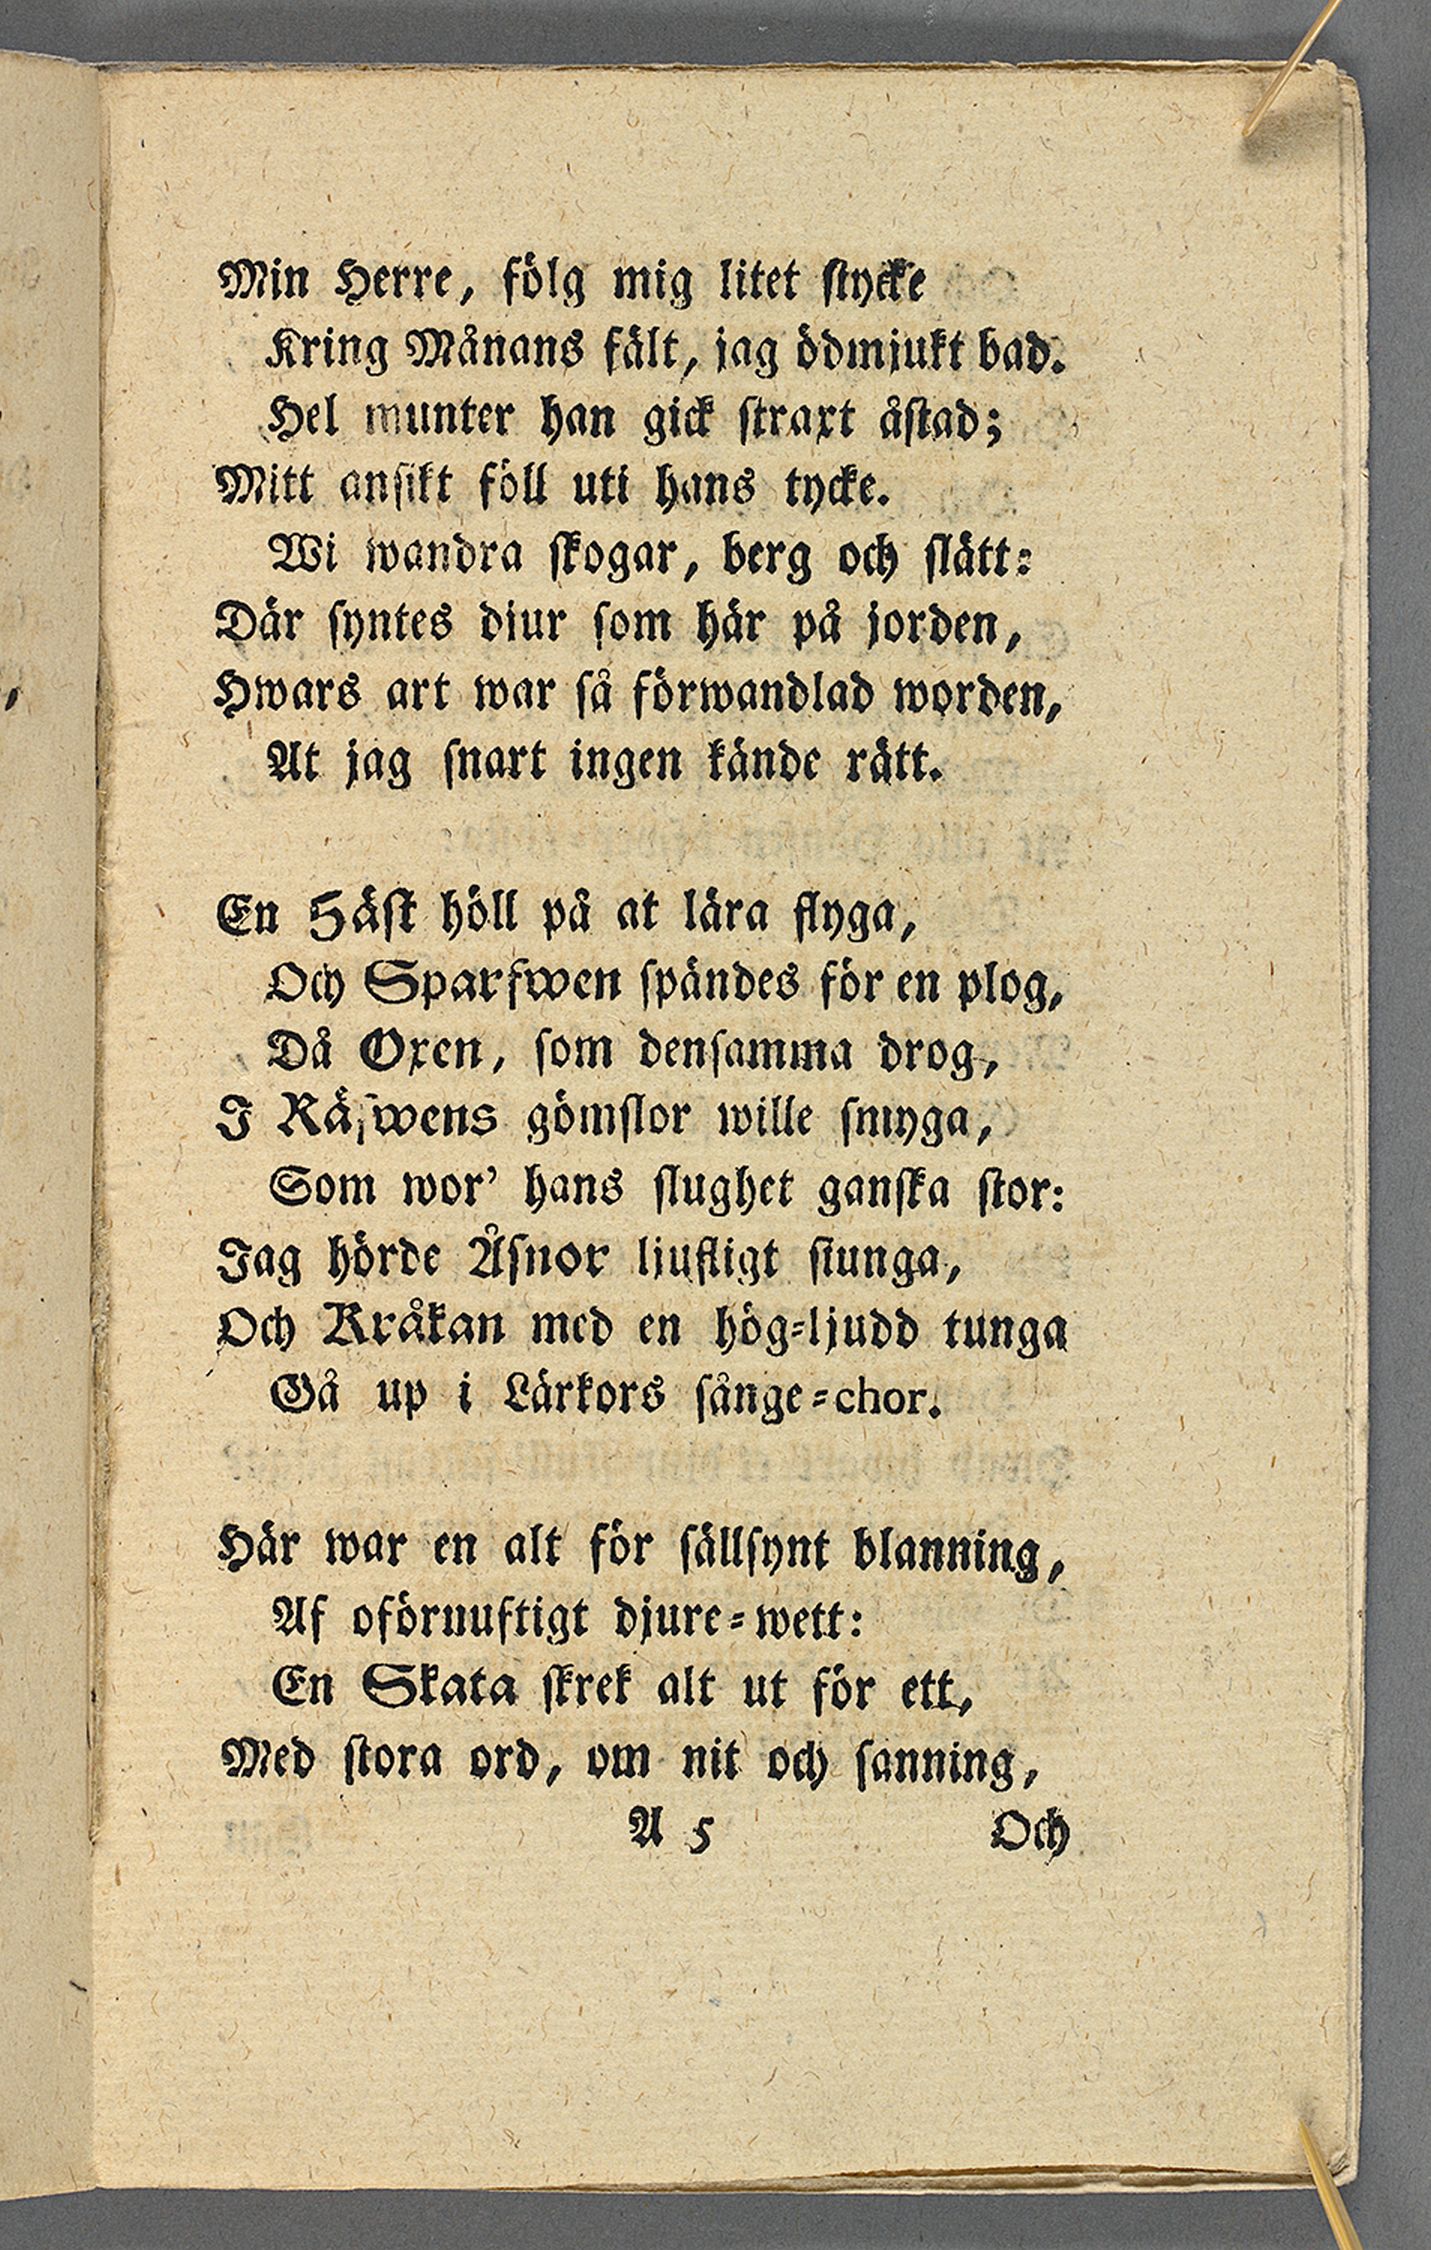 Min Herre, fölg mig litet stycke
Kring Månans fält, jag ödmjukt bad.
Hel munter han gick straxt åstad;
Mitt ansikt föll uti hans tycke.
Wi wandra skogar, berg och slätt:
Där syntes djur som här på jorden,
Hwars art war så förwandlad worden,
At jag snart ingen kände rätt.
En Häst höll på at lära flyga,
Och Sparfwen spändes för en plog,
Då Oxen, som densamma drog,
I Räfwens gömslor wille smyga,
Som wor' hans slughet ganska stor:
Jag hörde Åsnor ljufligt siunga,
Och Kråkan med en hög-ljudd tunga
Gå up i Lärkors sånge-chor.
Här war en alt för sällsynt blanning,
Af oförnuftigt djure-wett:
En Skata skrek alt ut för ett,
Med stora ord, om nit och sanning,
A 5 Och